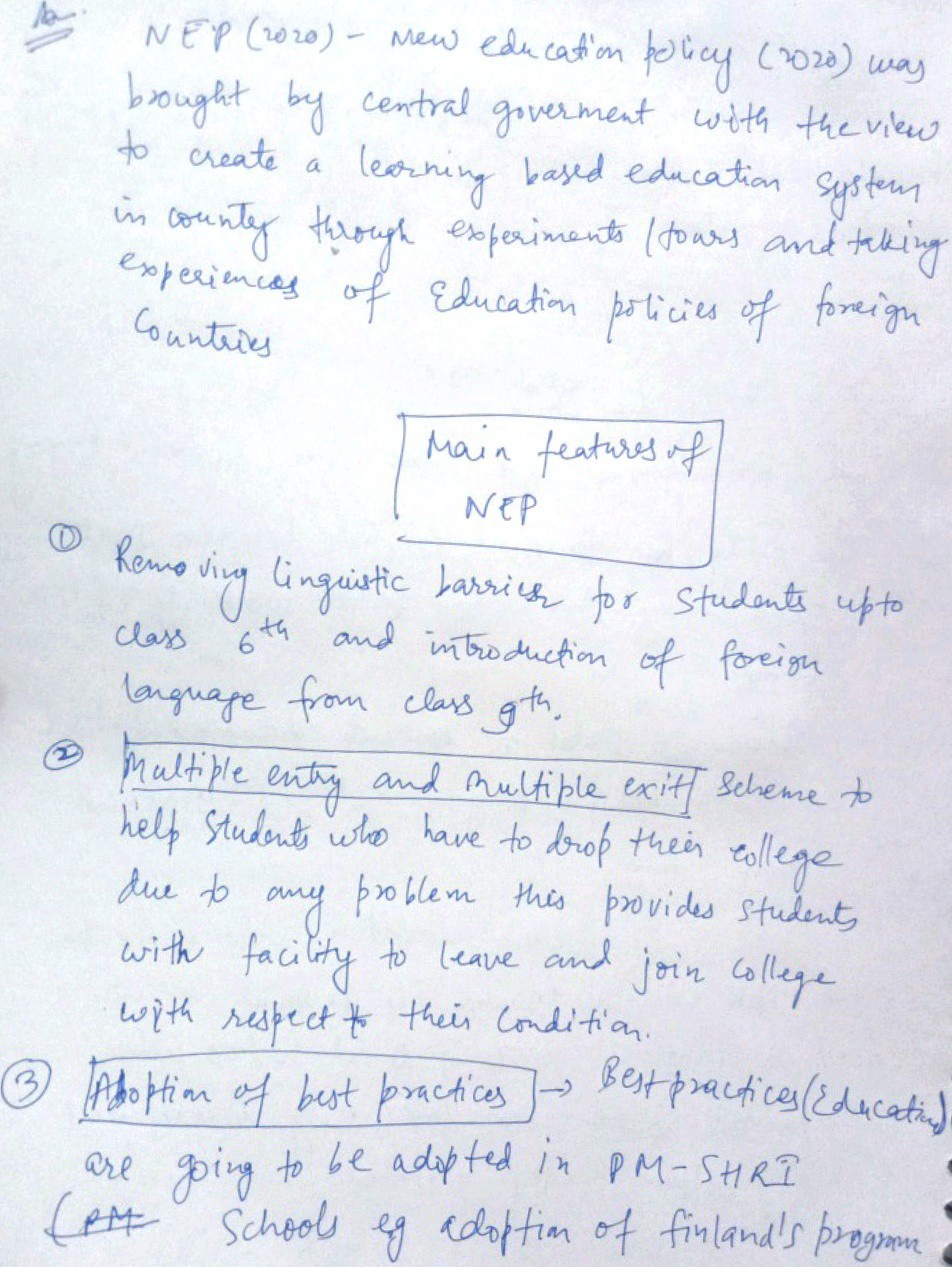 NEP (2020) - New education policy (2020) was
brought by central goverment with the view
to create a learning based education system
in county through experiments / tours and taking
experiences of Education policies of foreign
Countries
Main features of
NEP
① Removing linguistic barrier for students upto
class 6th and introduction of foreign
language from class 9th.
② Multiple entry and multiple exit scheme to
help students who have to drop their college
due to any problem this provides students
with facility to leave and join college
with respect to their condition.
③ Adoption of best practices → Best practices (Education)
are going to be adopted in PM-SHRI
(PM Schools eg adoption of finland's program